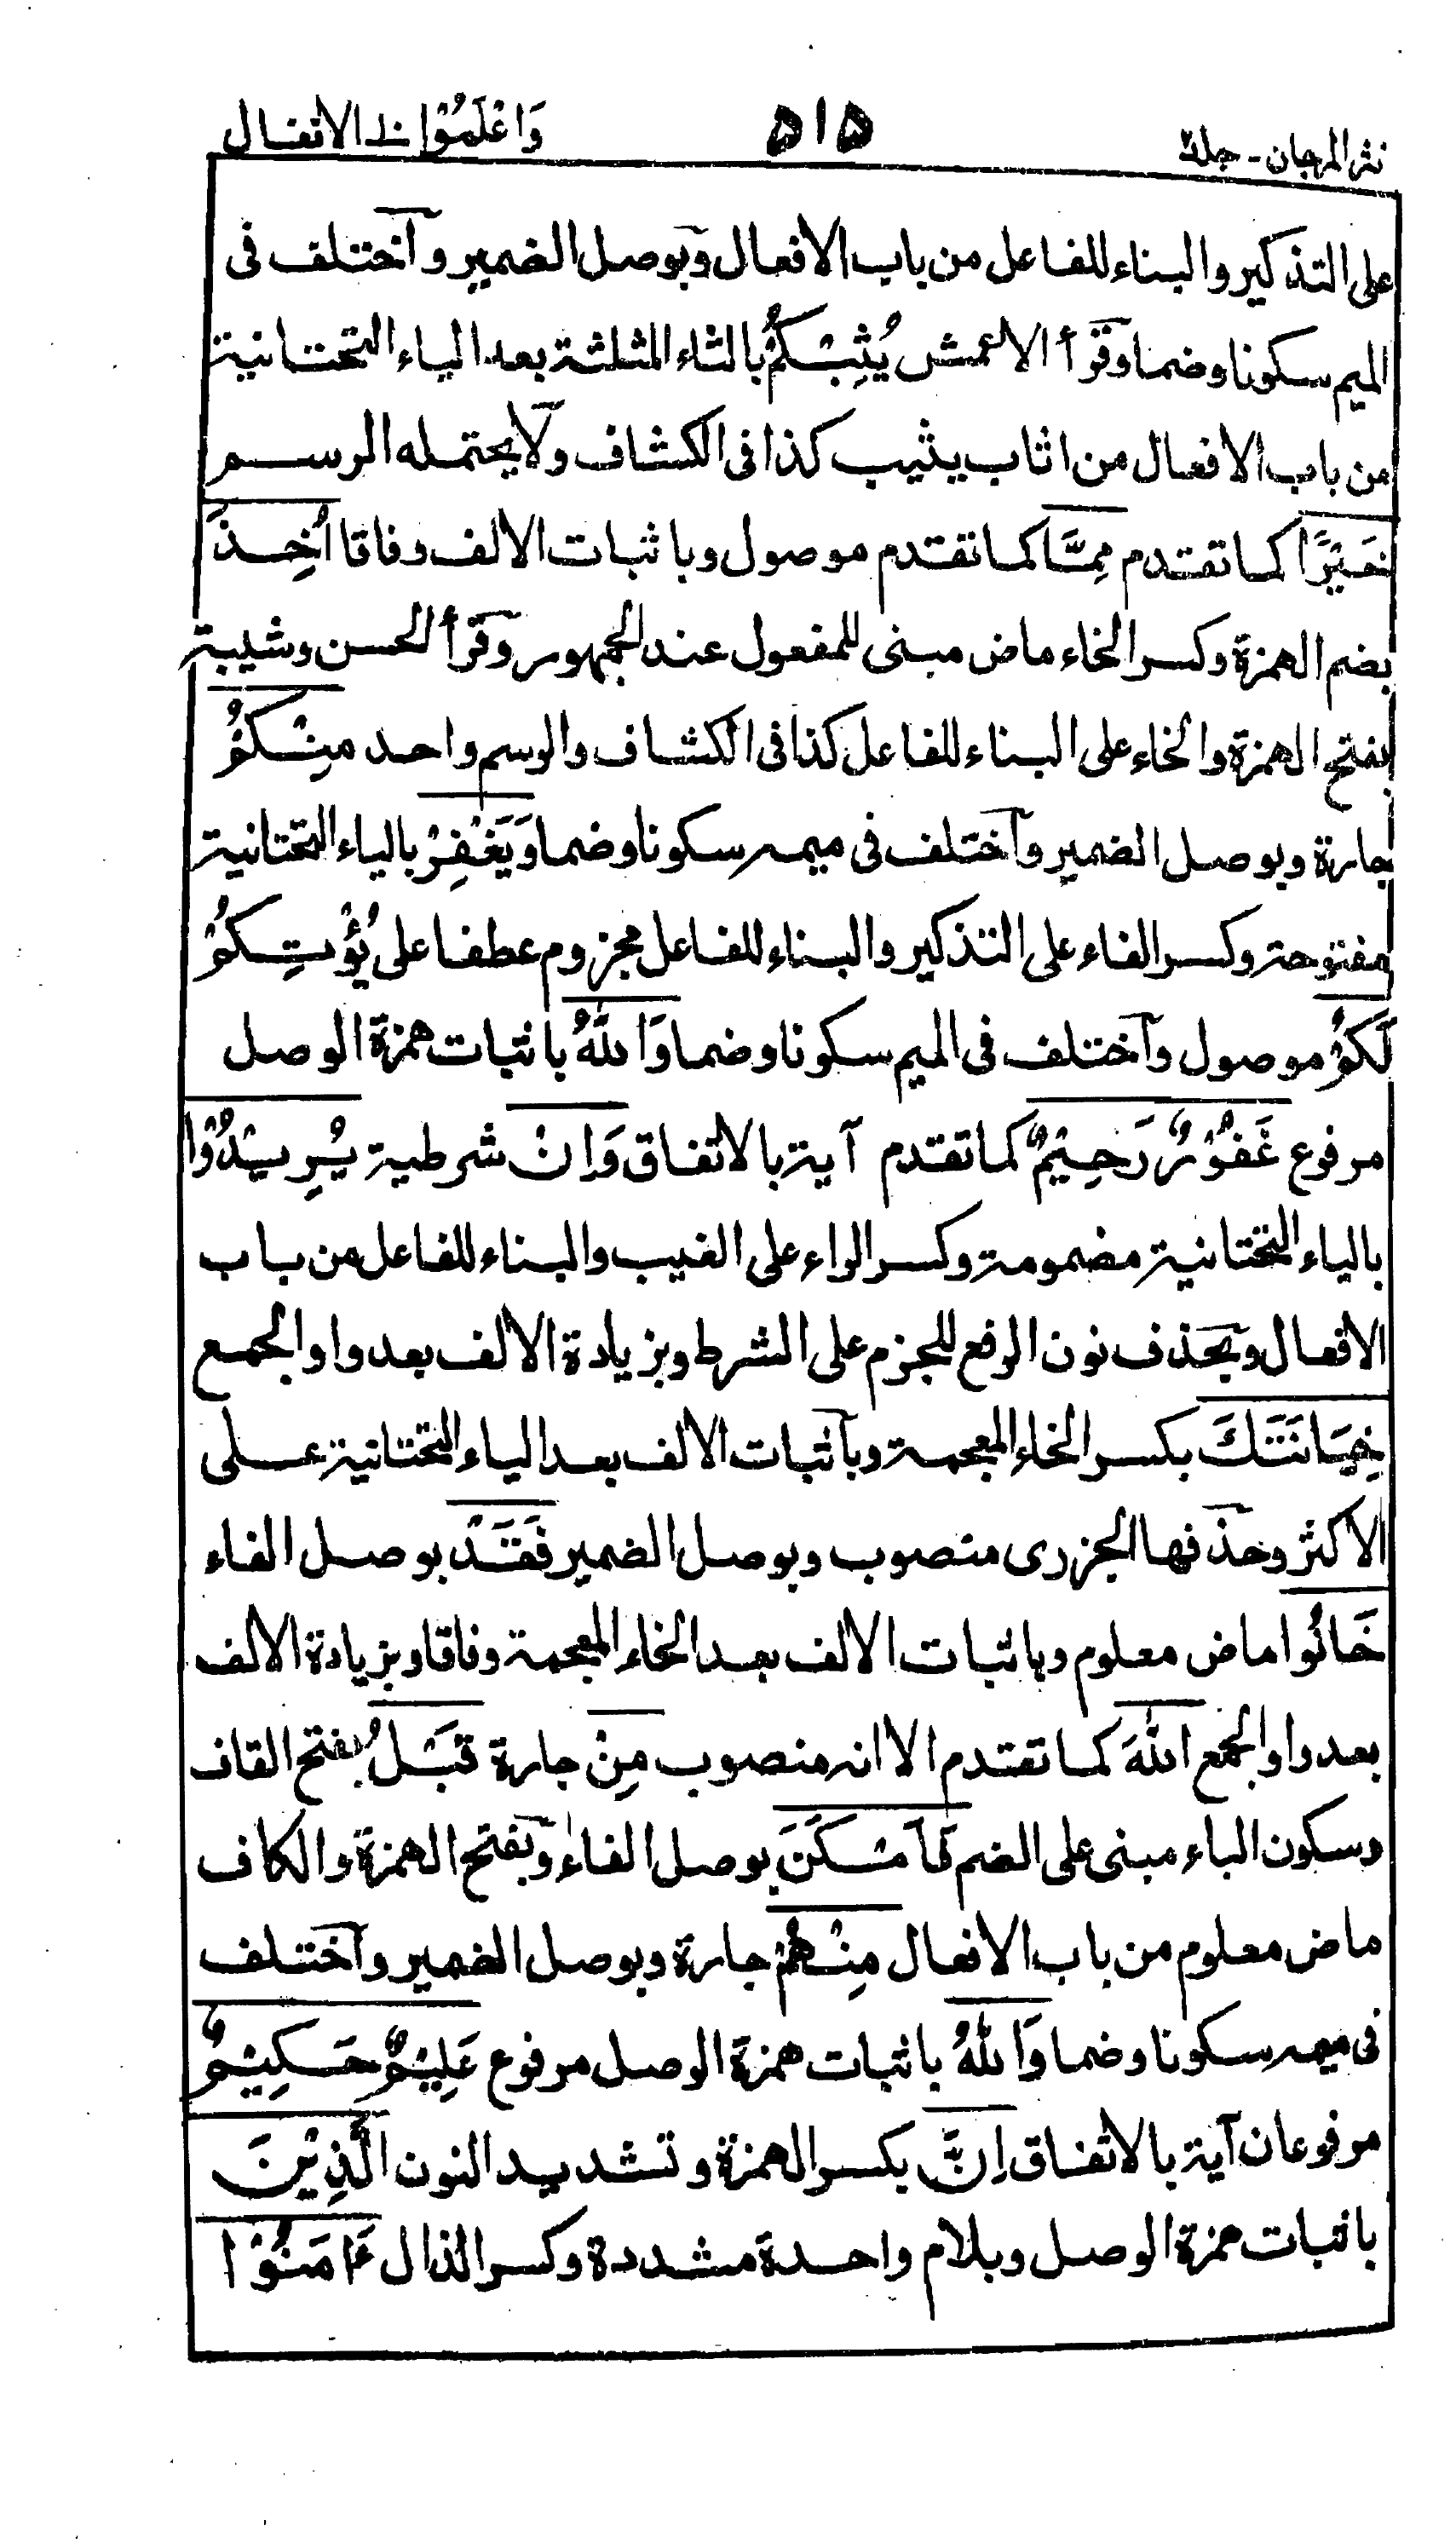 نثر المرجان - جلد ٢ ٥١٥ وَاعْلَمُوْا ١٠ الانفال
على التذكير والبناء للفاعل من باب الافعال وبوصل الضمير وآختلف فى
الميم سكونا وضما وقرأ الاعمش يُثِبْكُمْ بالثاء المثلثة بعد الياء التحتانية
من باب الافعال من اثاب يثيب كذا فى الكشاف ولا يحتمله الرسم
خَيْرًا كما تقدم مِمَّا كما تقدم موصول وباثبات الالف وفاقا اُخِذَ
بضم الهمزة وكسر الخاء ماض مبنى للمفعول عند الجمهور وقرأ الحسن وشيبة
بفتح الهمزة والخاء على البناء للفاعل كذا فى الكشاف والرسم واحد مِنْكُمْ
جارة وبوصل الضمير وآختلف فى ميمه سكونا وضما وَيَغْفِرْ بالياء التحتانية
مفتوحة وكسر الفاء على التذكير والبناء للفاعل مجزوم عطفا على يُؤْتِكُمْ
لَكُمْ موصول وآختلف فى الميم سكونا وضما وَاللّٰهُ باثبات همزة الوصل
مرفوع غَفُوْرٌ رَحِيْمٌ كما تقدم آية بالاتفاق وَاِنْ شرطية يُرِيْدُوْا
بالياء التحتانية مضمومة وكسر الراء على الغيب والبناء للفاعل من باب
الافعال وبحذف نون الرفع للجزم على الشرط وبزيادة الالف بعد واو الجمع
خِيَانَتَكَ بكسر الخاء المعجمة وبآثبات الالف بعد الياء التحتانية على
الاكثر وحذفها الجزرى منصوب وبوصل الضمير فَقَدْ بوصل الفاء
خَانُوا ماض معلوم وباثبات الالف بعد الخاء المعجمة وفاقا وبزيادة الالف
بعد واو الجمع اللّٰهَ كما تقدم الا انه منصوب مِنْ جارة قَبْلُ بفتح القاف
وسكون الباء مبنى على الضم فَاَمْكَنَ بوصل الفاء وبفتح الهمزة والكاف
ماض معلوم من باب الافعال مِنْهُمْ جارة وبوصل الضمير وآختلف
فى ميمه سكونا وضما وَاللّٰهُ باثبات همزة الوصل مرفوع عَلِيْمٌ حَكِيْمٌ
مرفوعان آية بالاتفاق اِنَّ بكسر الهمزة وتشديد النون الَّذِيْنَ
باثبات همزة الوصل وبلام واحدة مشددة وكسر الذال ءَامَنُوْا